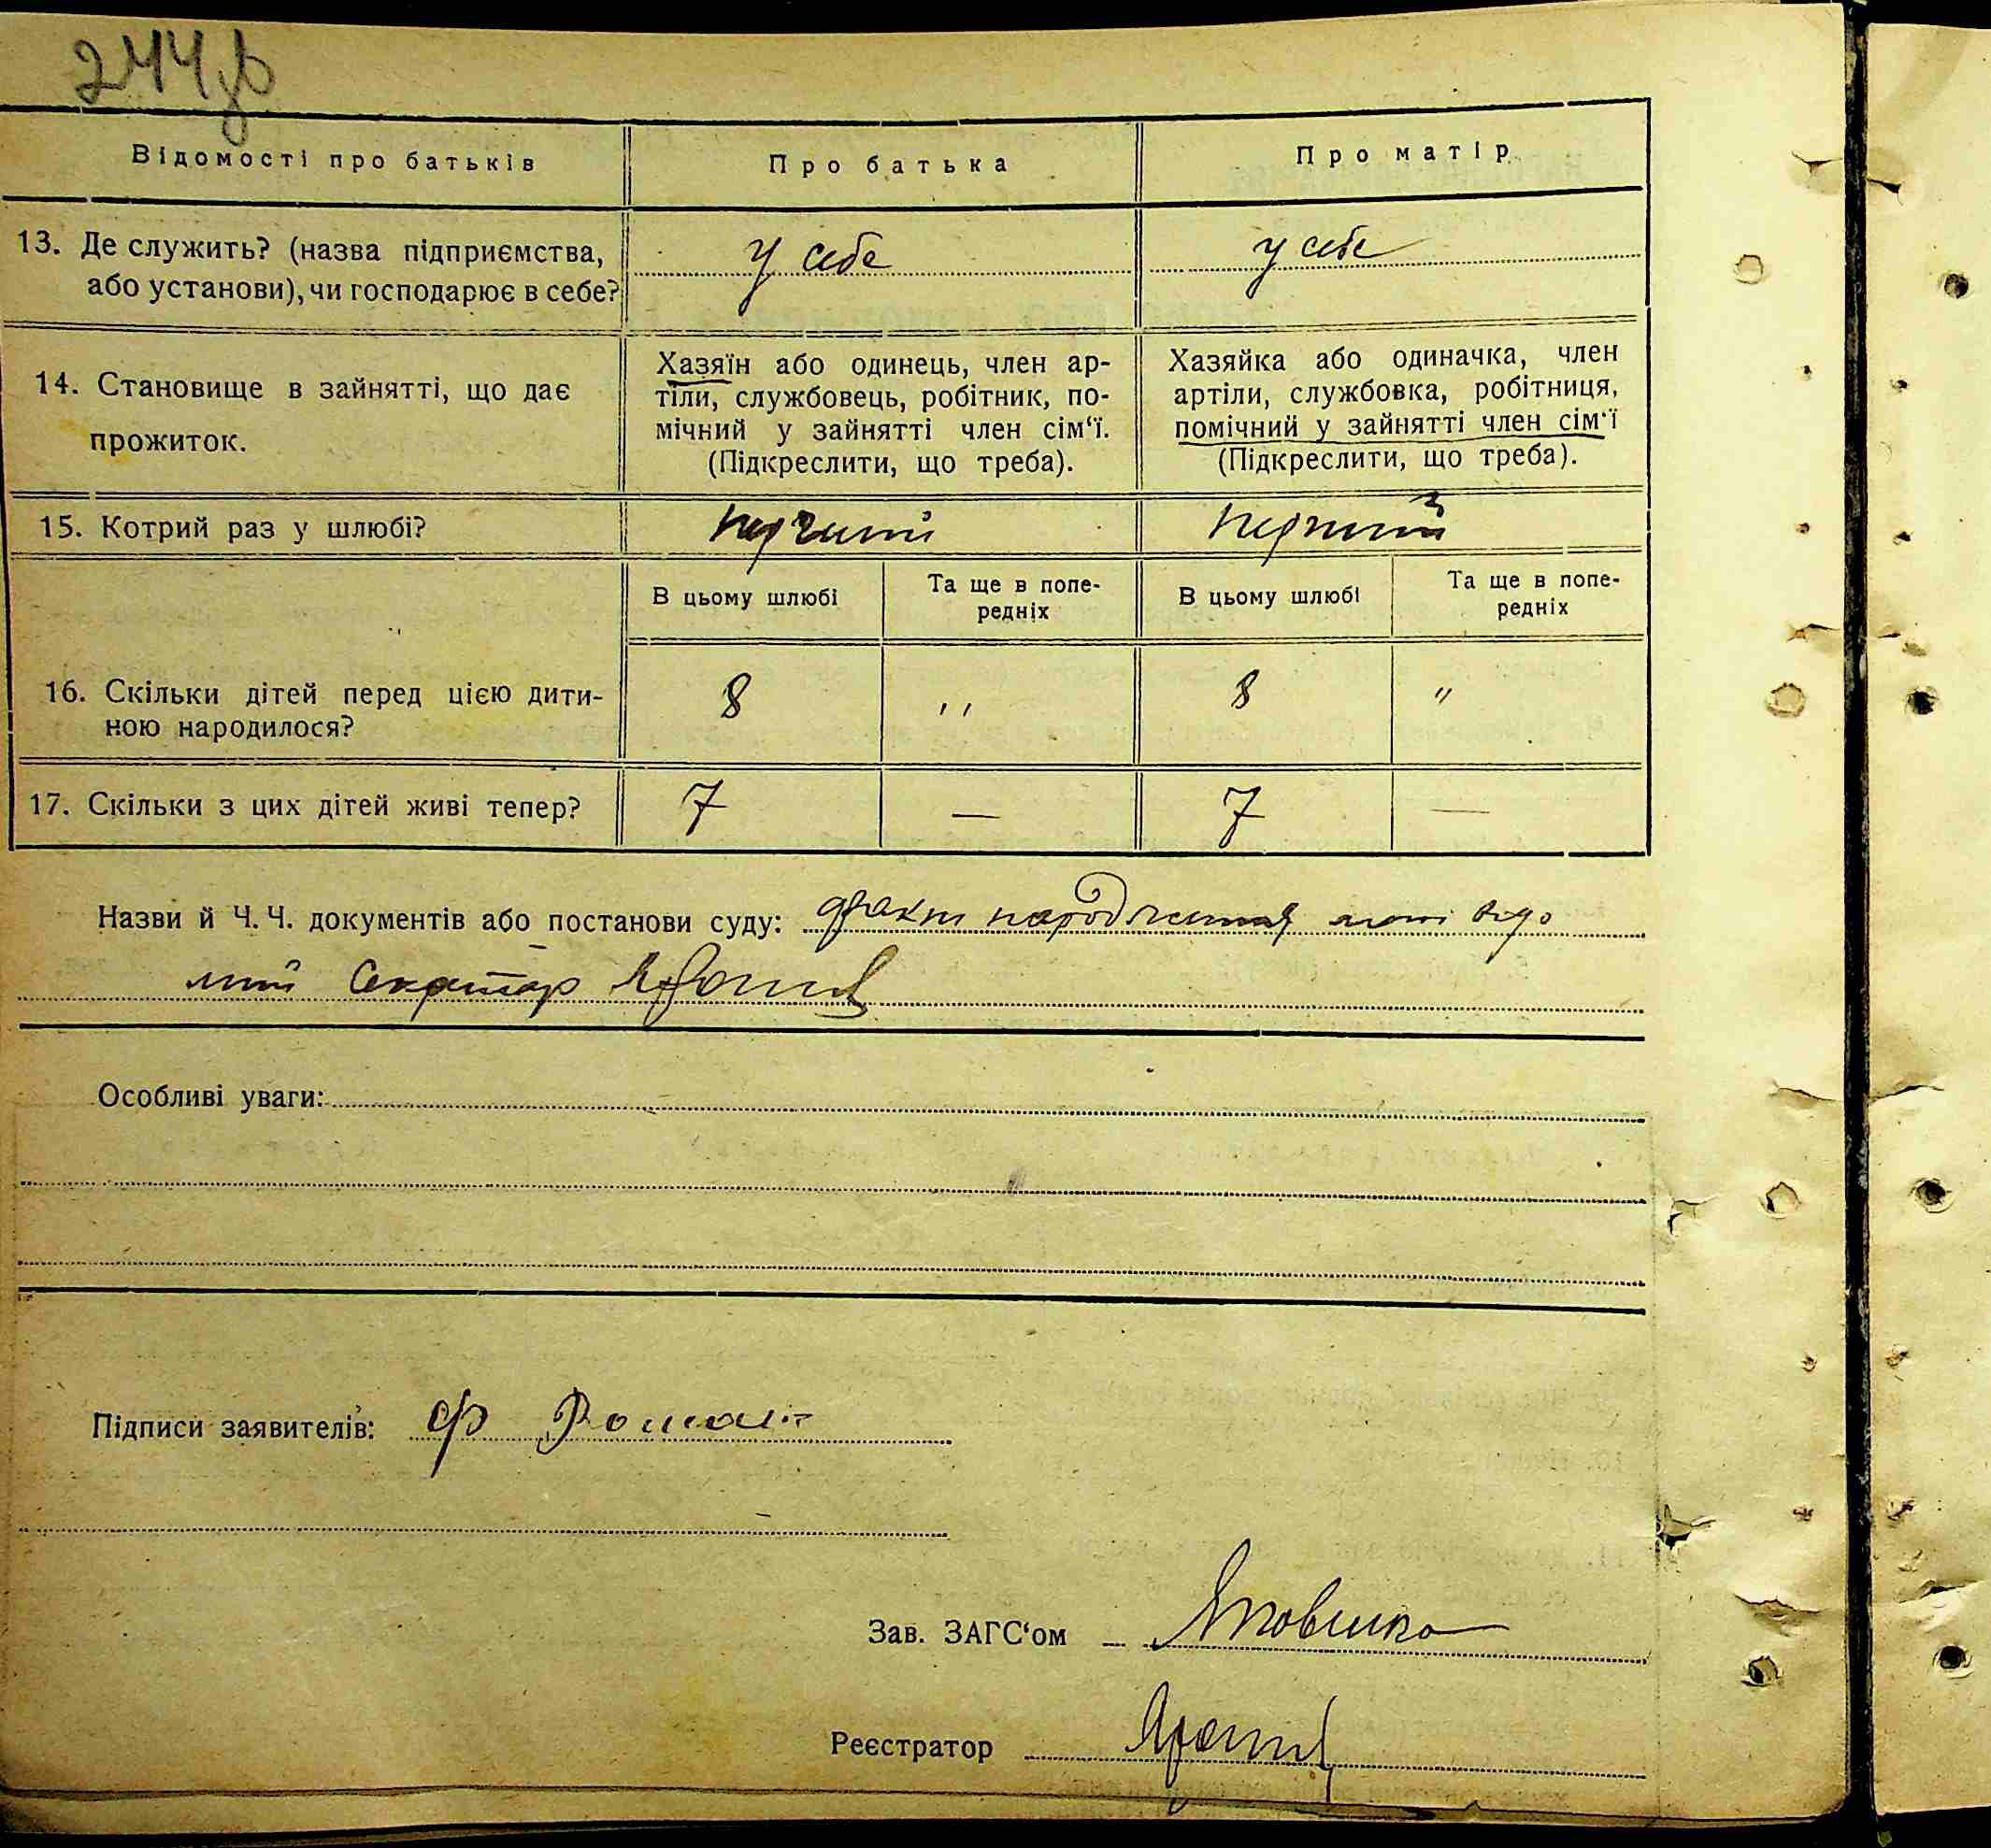 244зв
Відомості про батьків
Про батька
Про матір
13. Де служить? (назва підприємства,
або установи), чи господарює в себе?
у себе
у себе
14. Становище в зайнятті, що дає
прожиток.
Хазяїн або одинець, член ар-
тіли, службовець, робітник, по-
мічний у зайнятті член сім‘ї.
(Підкреслити, що треба).
Хазяйка або одиначка, член
артіли, службовка, робітниця,
помічний у зайнятті член сім‘ї
(Підкреслити, що треба).
15. Котрий раз у шлюбі?
перший
перший
В цьому шлюбі
Та ще в попе-
редніх
В цьому шлюбі
Та ще в попе-
редніх
16. Скільки дітей перед цією дити-
ною народилося?
8
"
8
"
17. Скільки з цих дітей живі тепер?
7
—
7
—
Назви й Ч. Ч. документів або постанови суду: факт народження мені відо
мий Секретар
Особливі уваги:
Підписи заявителів: Ф Роман
Зав. ЗАГС‘ом
Реєстратор